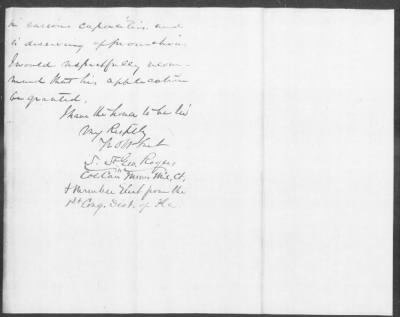 in various capacities and
is deserving of promotion.
I would respectfully recom-
mend that his application
be granted.
I have the honor to be Sir
Very Respctly
Yr Obt Svt
S. St. Geo. Rogers
Col & Mil. Ct.
& Member Elect from the
1st Cong. Dist. of Fla